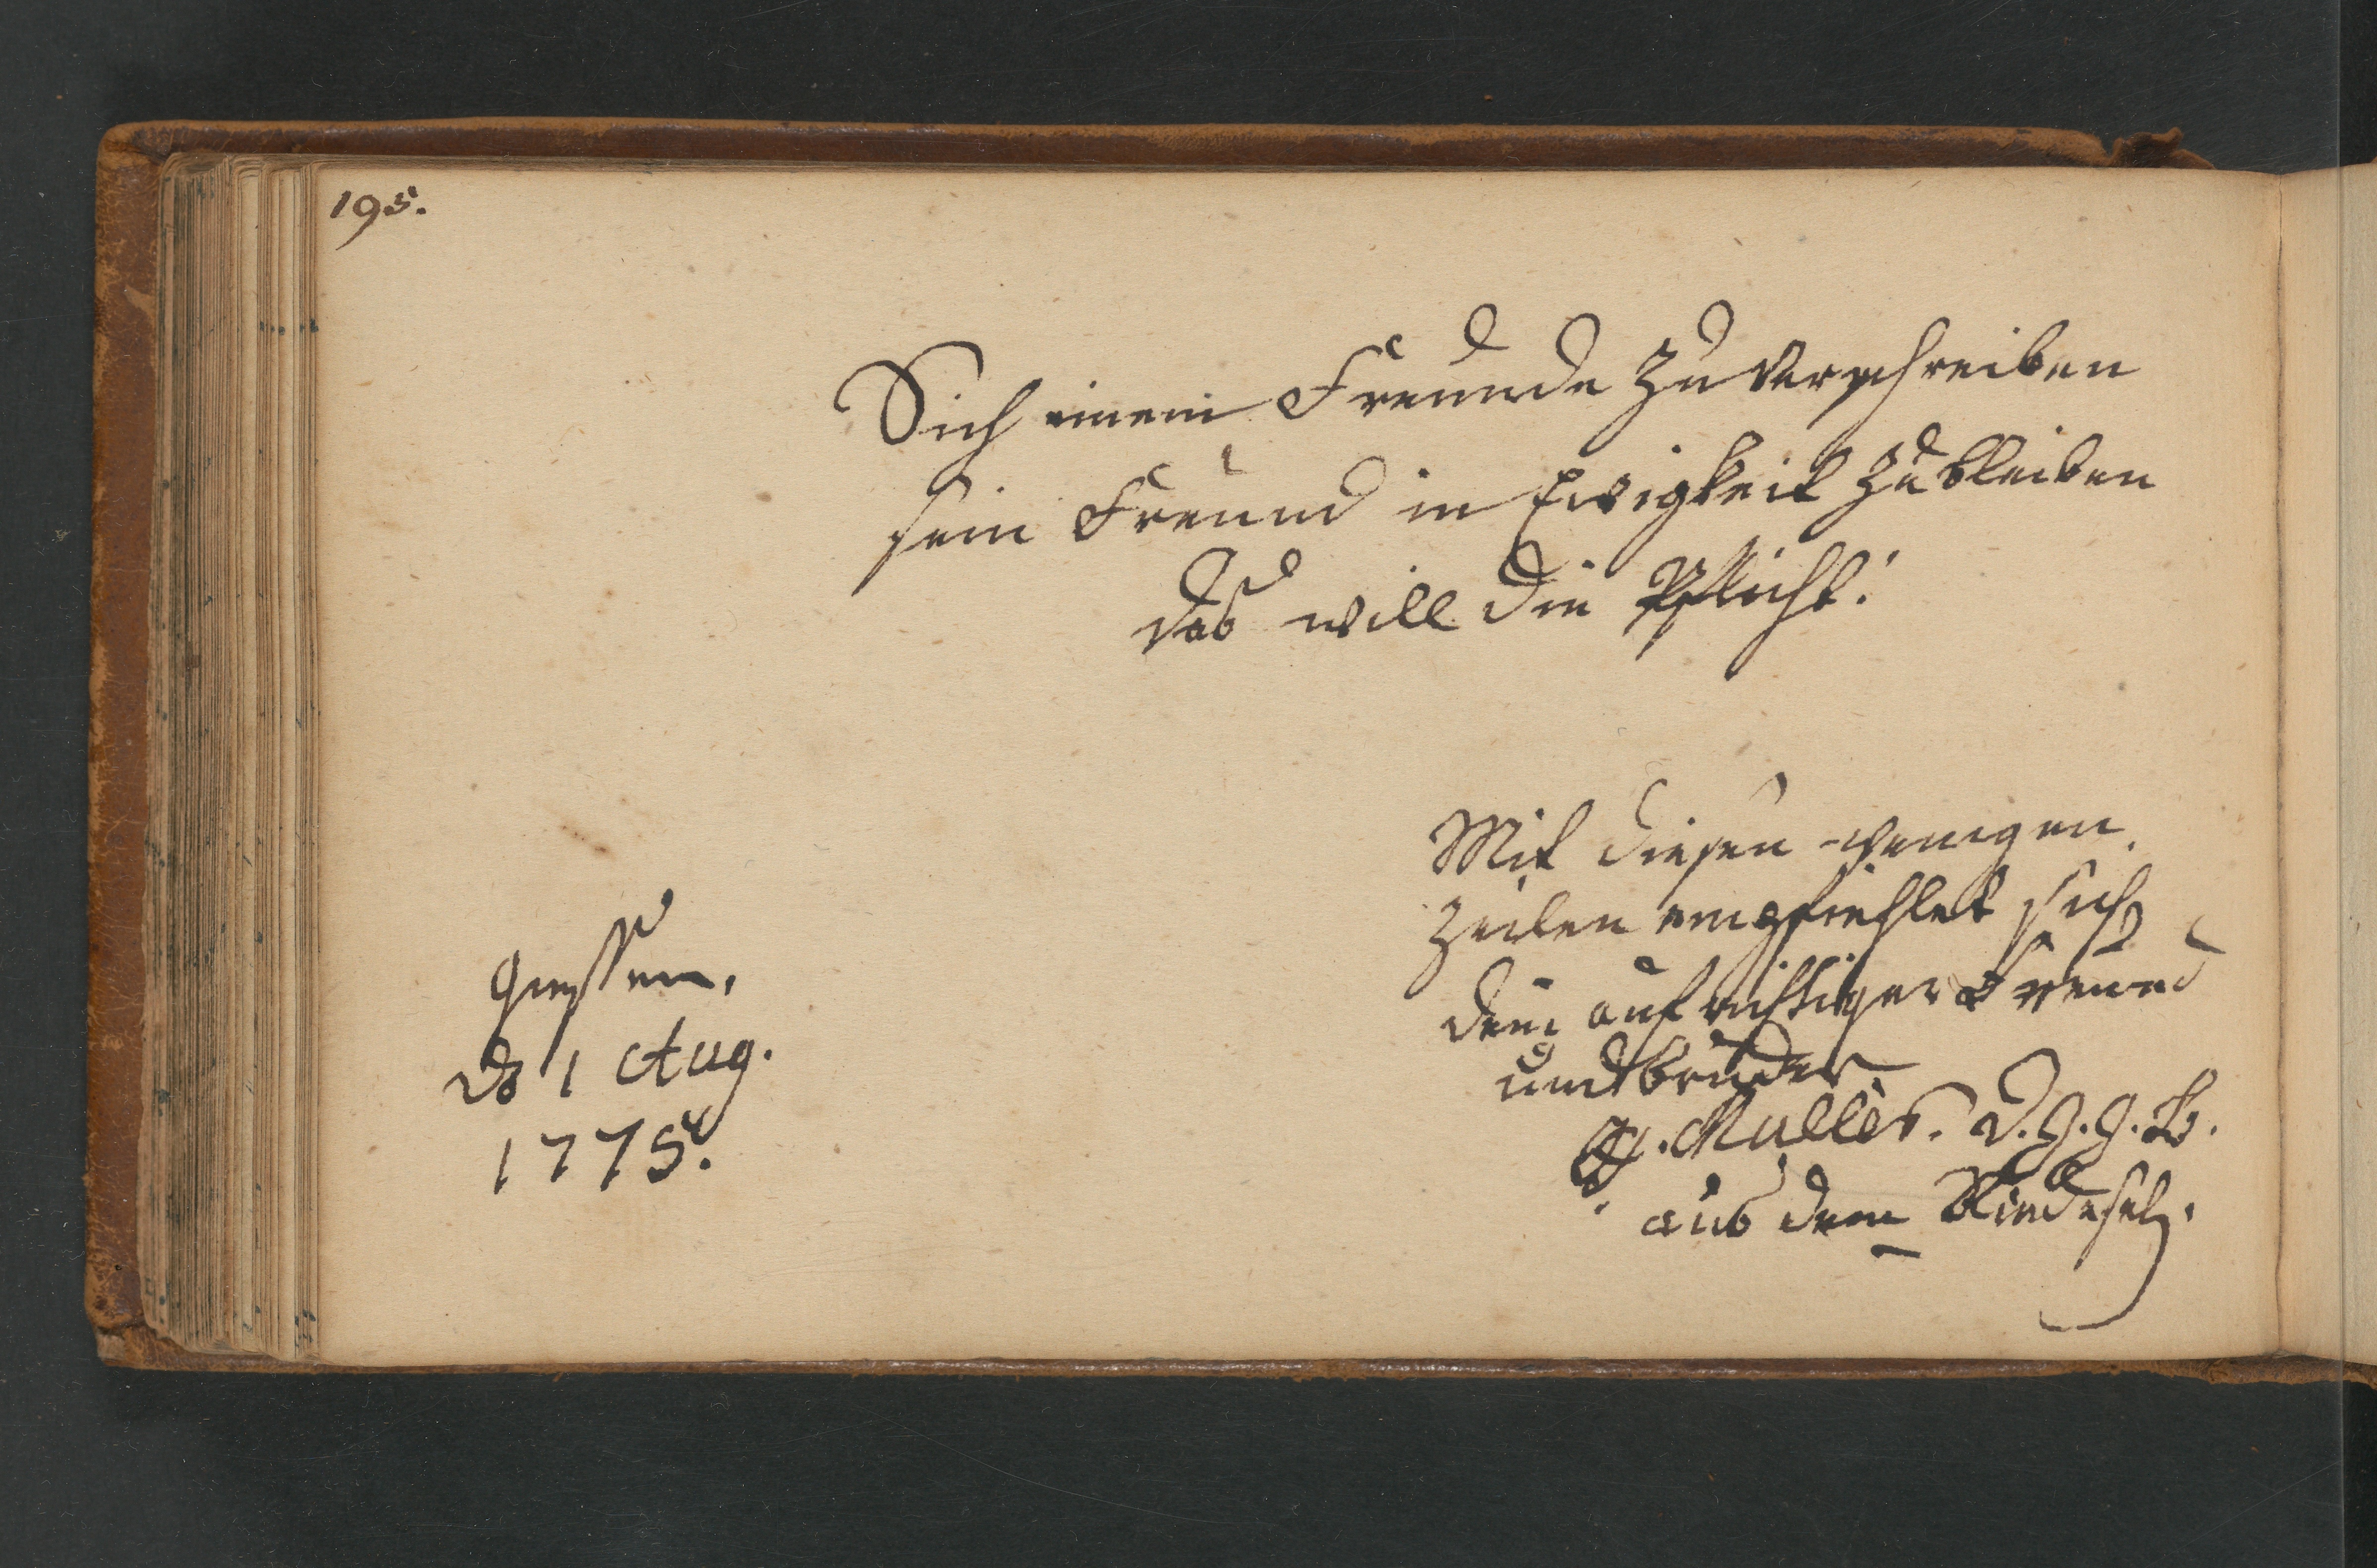 195.
Sich einem Freunde zu verschreiben
sein Freund in Ewigkeit zu bleiben
das will die Pflicht!
Mit diesen wenigen
Zeilen empfiehlet sich
dein aufrichtiger Freund
und bruder
Müller. D. G. G. B.
aus dem Riedesel.
Giessen,
d 1 Aug.
1775.